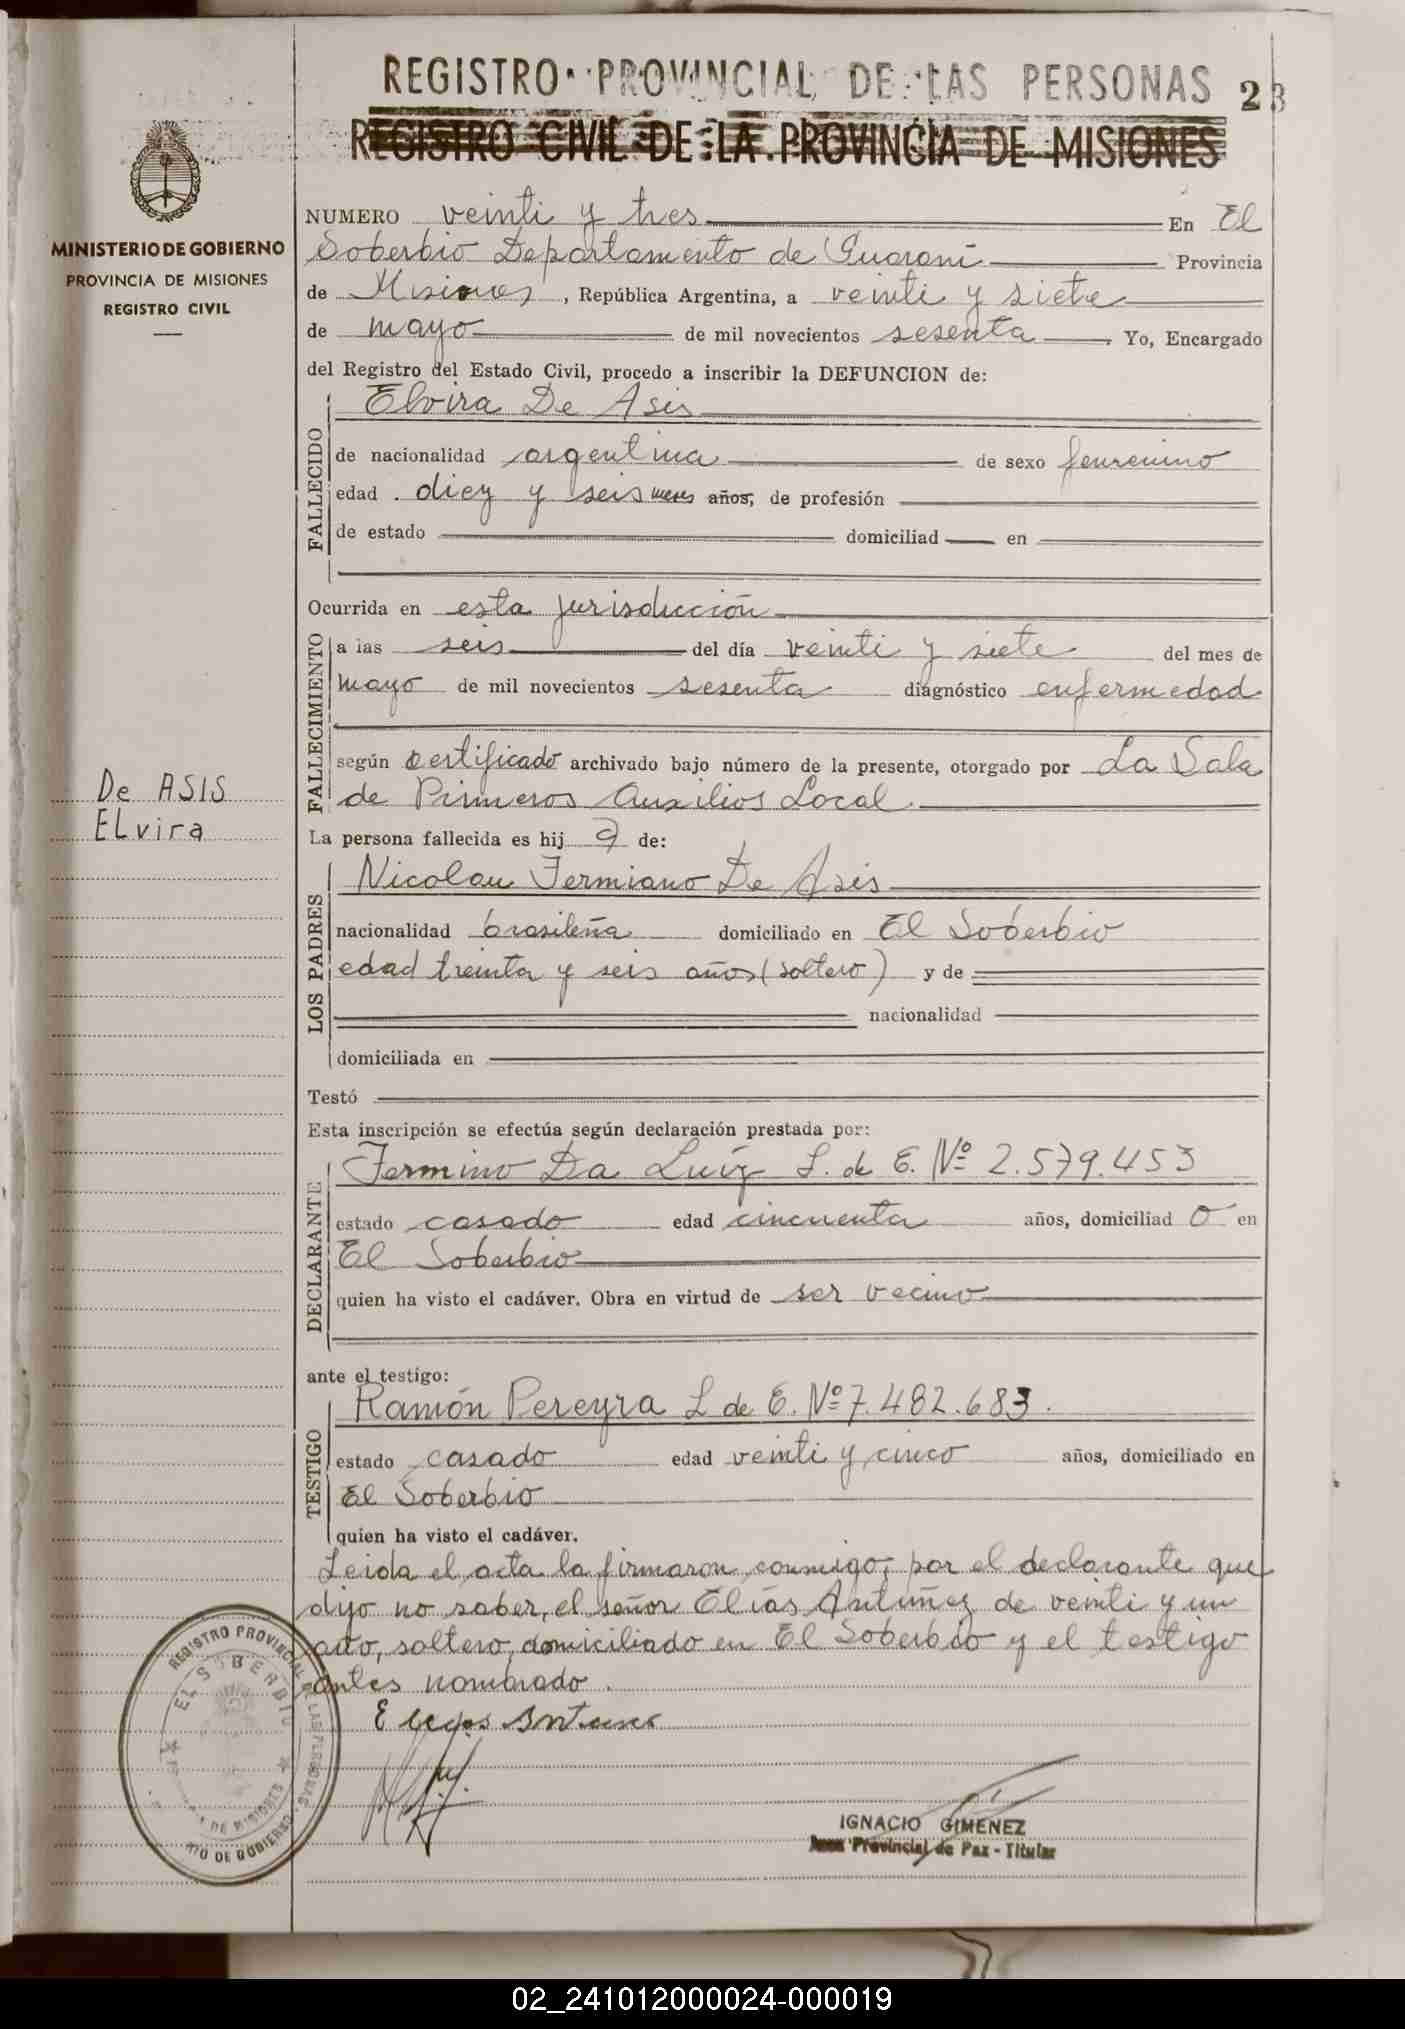 REGISTRO PROVINCIAL DE LAS PERSONAS 23
REGISTRO CIVIL DE LA PROVINCIA DE MISIONES
MINISTERIO DE GOBIERNO
PROVINCIA DE MISIONES
REGISTRO CIVIL
De ASIS
ELvira
NUMERO veinti y tres En El
Soberbio Departamento de Guaraní Provincia
de Misiones, República Argentina, a veinti y siete
de mayo de mil novecientos sesenta. Yo, Encargado
del Registro del Estado Civil, procedo a inscribir la DEFUNCION de:
FALLECIDO
Elvira De Asis
de nacionalidad argentina de sexo femenino
edad diez y seis meses años, de profesión
de estado domiciliad en
Ocurrida en esta jurisducción
FALLECIMIENTO
a las seis del día veinti y siete del mes de
mayo de mil novecientos sesenta diagnóstico enfermedad
según certificado archivado bajo número de la presente, otorgado por La Sala
de Primeros Auxilios Local.
La persona fallecida es hij a de:
LOS PADRES
Nicolau Fermiano De Asis
nacionalidad brasileña domiciliado en El Soberbio
edad treinta y seis años (soltero) y de
nacionalidad
domiciliada en
Testó
Esta inscripción se efectúa según declaración prestada por:
DECLARANTE
Fermino Da Luiz L. de E. Nº 2.579.453
estado casado edad cincuenta años, domiciliad o en
El Soberbio
quien ha visto el cadáver. Obra en virtud de ser vecino
ante el testigo:
TESTIGO
Ramón Pereyra L de E. Nº 7.482.683.
estado casado edad veinti y cinco años, domiciliado en
El Soberbio
quien ha visto el cadáver.
Leida el acta la firmaron conmigo, por el declarante que
dijo no saber, el señor Elías Antuñez de veinti y un
año, soltero, domiciliado en El Soberbio y el testigo
antes nombrado.
REGISTRO PROVINCIAL DE LAS PERSONAS
EL SOBERBIO
DE MISIONES
DE GOBIERNO
IGNACIO GIMENEZ
Juez Provincial de Paz - Titular
02_241012000024-000019